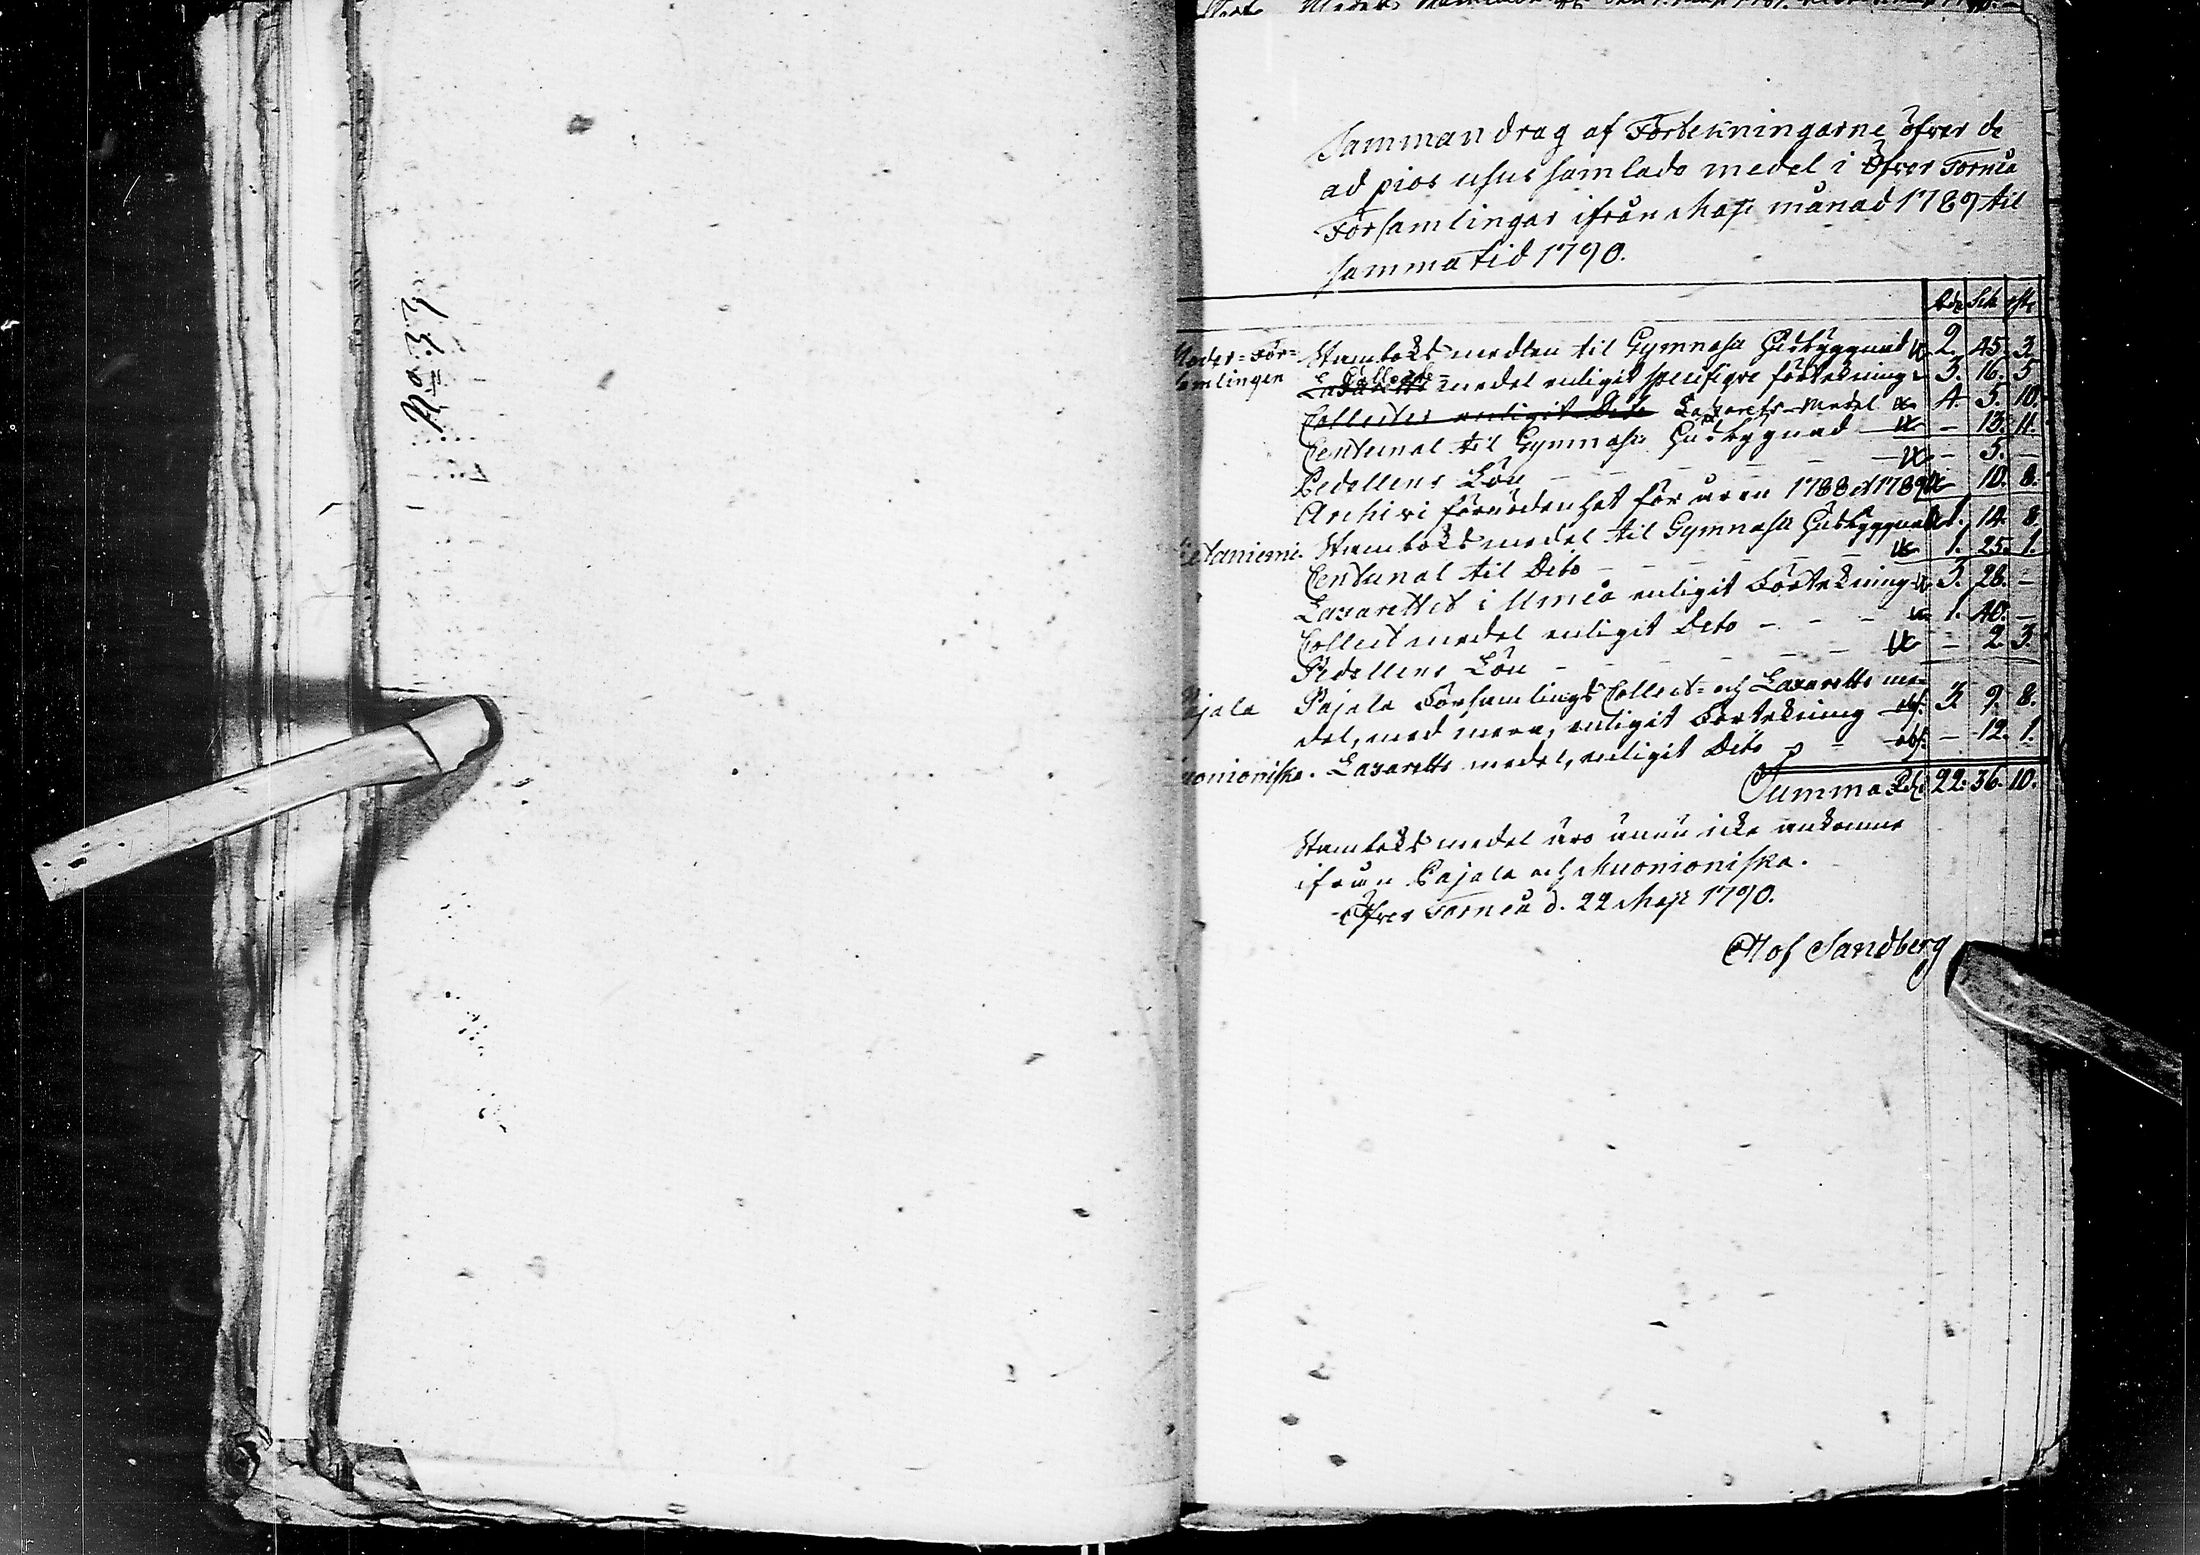 No 33
Sammandrag af Förtekningarne öfver de
ad pios usus samlade medel i Öfver Torneå
Församlingar ifrån Maji månad 1789 til
samma tid 1790.
Rdr Sch rst
Moder=För= Stamboks medlen til Gymnasii Husbyggnad 2. 45. 3.
samlingen Collect- medel enligit specifique förtekning 3. 16. 5
Collecter enligit Dito Lazaretts-Medel 4. 5. 10.
Centunal til Gymnasii Husbygnad - 13. 11.
Pedellens Lön - 5. -
Archivi förnödenhet för åren 1788 et 1789 - 10. 8.
Hietaniemi. Stamboks medel til Gymnasii Husbyggnad 1. 14. 8.
Centunal til Dito 1. 25. 1.
Lazarettet i Umeå enligit Förtekning 3. 28. -
Collect medel enligit Dito - - - 1. 40. -
Pedellens Lön - 2. 3.
Pajala Pajala Församlings Collect= och Lazaretts me=
del, med mera, enligit Förtekning 3. 9. 8.
Muonioniska. Lazaretts medel, enligit Dito - 12. 1.
Summa Rdr 22. 36. 10.
Stamboks medel äro ännu icke ankomne
ifrån Pajala och Muonioniska.
Öfver Torneå d. 22 Maji 1790.
Olof Sandberg